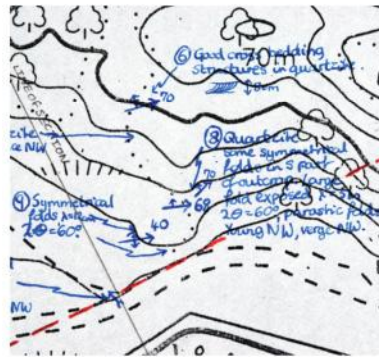 ⑥ Good cross bedding
structures in quartzite
70m
70
LINE OF SECTION
NW
⑧ Quartzite
some symmetrical
folds in S part
of outcrop, large
fold exposed
2θ=60°, parasitic folds
Young NW, verge NW.
70
68
Symmetrical
folds
2θ=60°
40
NW
10